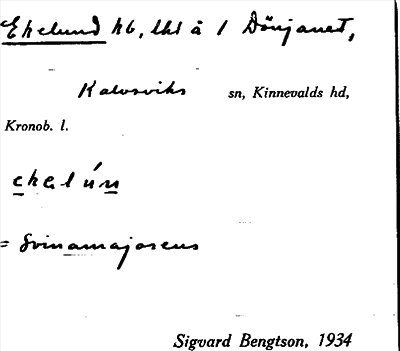 Ekelund hb, lht å 1 Dönjanet,
Kalvsviks sn, Kinnevalds hd,
Kronob. l.
ekelún
= Svinamajorens
Sigvard Bengtson, 1934